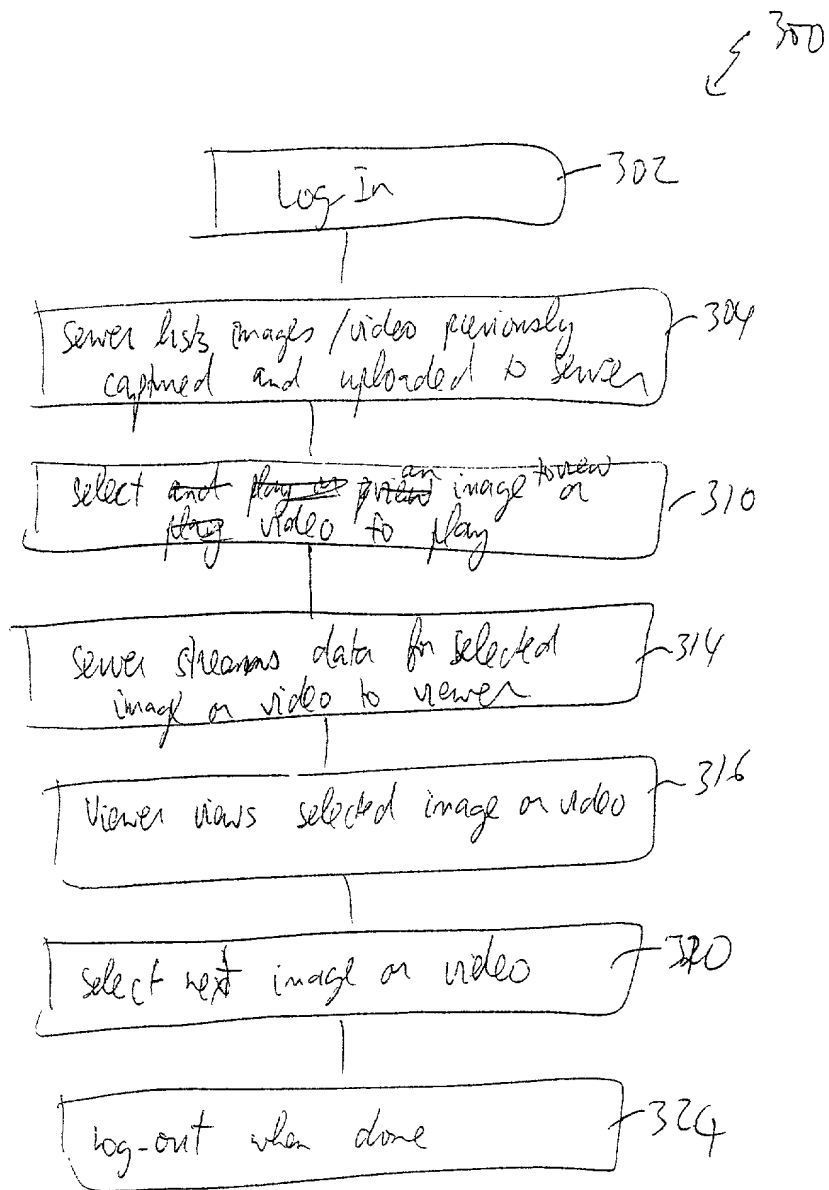 300
Log-In
302
Server lists images / video previously
captured and uploaded to server
304
select and play or preview an image to view or
play video to play
310
Server streams data for selected
image or video to viewer
314
Viewer views selected image or video
316
select next image or video
320
Log-out when done
324